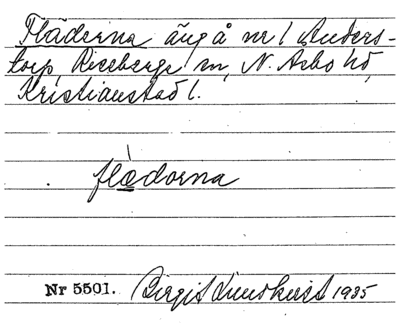 Fläderna äng å nr 1 Anders-
torp, Riseberga sn, N. Åsbo hd,
Kristianstad l.
flæ̀dorna
Nr 5501. Birgit Lundkvist 1935